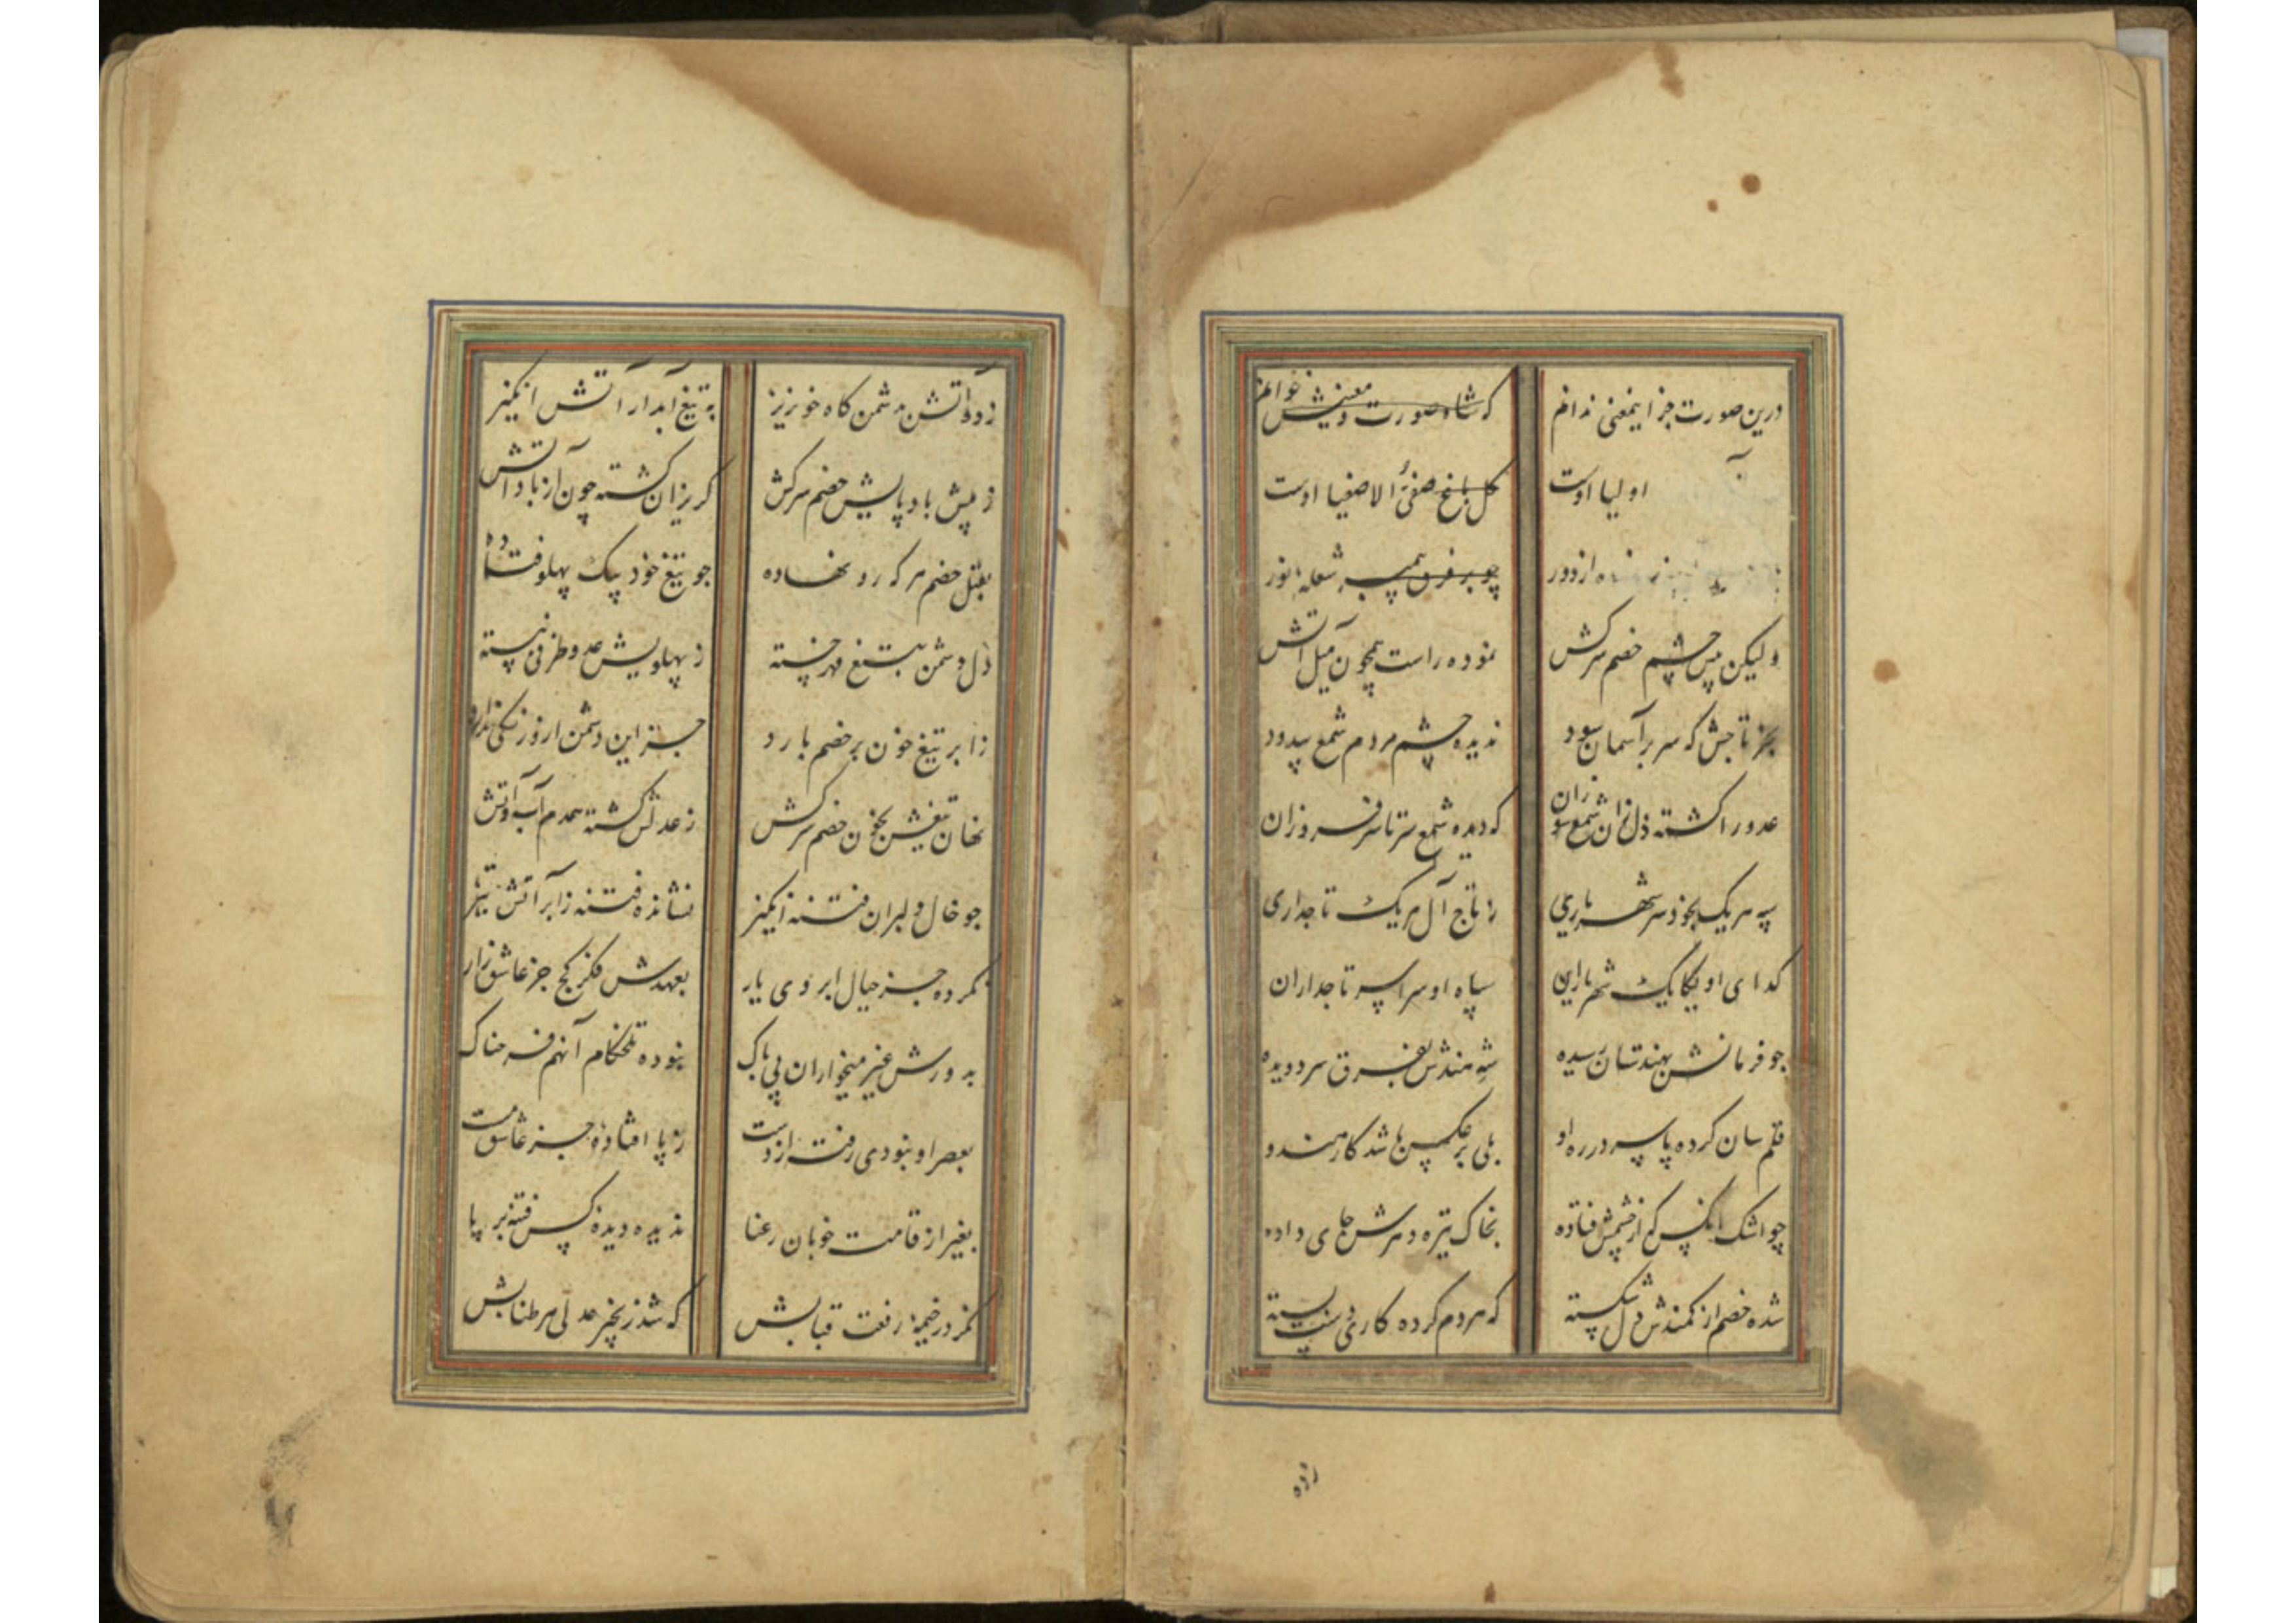 درین صورت جز اینمعنی ندانم که شاه صورت و معنیش خوانم
اولیا اوست گل باغ صفی الاصفیا اوست
از دور چو بر فرق سپهر شعله نور
ولیکن پیش چشم خصم سرکش نموده راست همچون میل آتش
بجز تاجش که سر بر آسمان سود ندیده چشم مردم شمع بیدود
عدو را کشته دل زان شمع سوزان که دیده شمع سر تا سر فروزان
سپه هر یک بخود سر شهریاری ز تاج آل هر یک تاجداری
گدای او یکایک شهریاران سپاه او سراسر تاجداران
چو فرمانش بهندستان رسیده شه هندش بفرق سر دویده
قلم سان کرده پا سر در ره او بلی بر عکس باشد کار هندو
چو اشک آنکس که از چشمش فتاده بخاک تیره دهرش جای داده
شده خصم از کمندش دل شکسته که هر دم کرده کاری بسته
رده
زدود آتش دشمن گاه خونریز به تیغ آبدار آتش انگیز
ز پیش باد پایش خصم سرکش گریزان گشته چون از باد آتش
بقتل خصم هر که رو نهاده چو تیغ خود بیک پهلو فتاده
دل دشمن به تیغ قهر خسته ز پهلویش عدو طرفی نبسته
ز ابر تیغ خون بر خصم بارد جز این دشمن ازو رنگی ندارد
نهان تیغش بخون خصم سرکش ز عدلش گشته همدم آب و آتش
چو خال دلبران فتنه انگیز نشانده فتنه را بر آتش تیز
نکرده جز خیال ابروی یار بعهدش فکر کج جز عاشق زار
بدورش غیر میخواران بی باک نبوده تلخکام آنهم فرحناک
بعصر او نبودی رفته از دست ز پا افتاده جز عاشق مست
بغیر از قامت خوبان رعنا ندیده دیده کس فتنه بر پا
مگر در خیمه رفعت قبابش که شد زنجیر عدلی هر طنابش